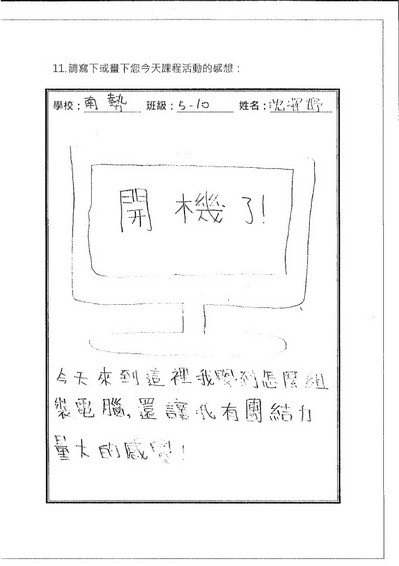 11.請寫下或畫下您今天課程活動的感想：
學校：南勢 班級：5-10 姓名：沈
開機了!
今天來到這裡我學到怎麼組
裝電腦,還讓我有團結力
量大的感覺!